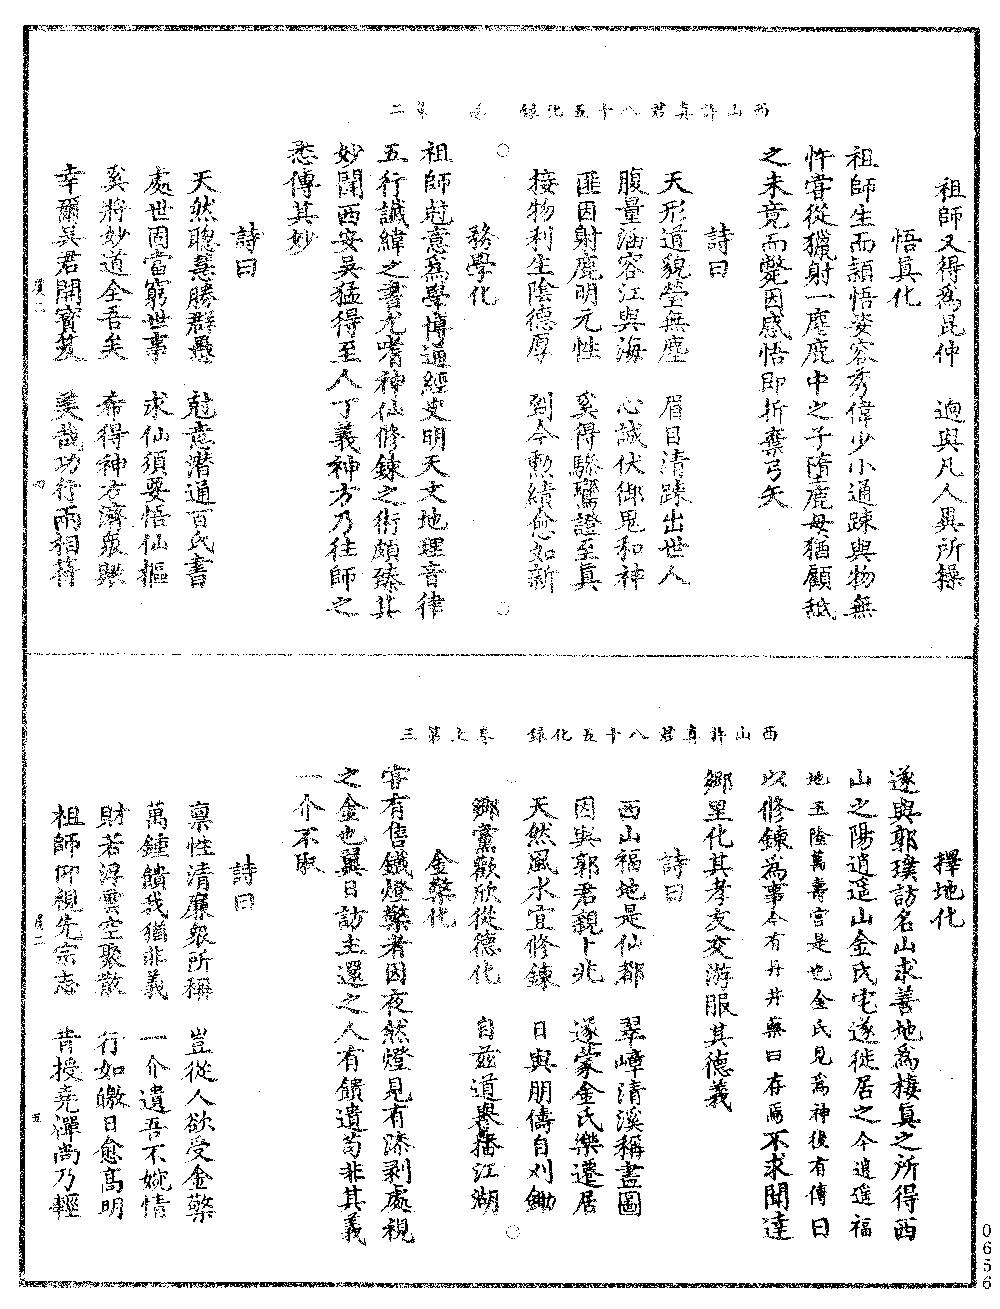 祖師又得為昆仲　迥與凡人異所操
悟真化
祖師生而頴悟姿容秀偉少小通踈與物無
忤嘗從獵射一麀鹿中之子墮鹿母猶顧舐
之未竟而斃因感悟即折棄弓矢
詩曰
天形道貌瑩無塵　眉目清踈出世人
腹量涵容江與海　心誠伏御鬼和神
匪因射鹿明元性　奚得驂鸞證至真
接物利生陰德厚　到今勲績愈如新
西山許真君八十五化録　卷　第二
○　○
務學化
祖師尅意為學博通經史明天文地理音律
五行讖緯之書尤嗜神仙修鍊之術頗臻其
妙聞西安吳猛得至人丁義神方乃往師之
悉傳其妙
詩曰
天然聰慧勝群愚　尅意潜通百氏書
處世固當窮世事　求仙須要悟仙樞
奚將妙道全吾矣　希得神方濟衆歟
幸爾吳君開寶笈　美哉功行兩相符
虞二　四
擇地化
遂與郭璞訪名山求善地為棲真之所得西
山之陽逍遥山金氏宅遂徙居之今逍遥福
地玉隆萬壽宮是也金氏見為神後有傳曰
以修鍊為事今有丹井藥臼存焉不求聞達
鄉里化其孝友交游服其德義
詩曰
西山福地是仙都　翠嶂清溪稱畫圖
因與郭君親卜兆　遂蒙金氏樂遷居
天然風水宜修鍊　日與朋儔自刈鋤
鄉黨歡欣從德化　自兹道譽播江湖
西山許真君八十五化録　卷上第三
○　○
金檠化
甞有售鐵燈檠者因夜然燈見有漆剥處視
之金也翼日訪主還之人有饋遺苟非其義
一介不取
詩曰
稟性清廉衆所稱　豈從人欲受金檠
萬鍾饋我猶非義　一介遺吾不婉情
財若浮雲空聚散　行如皦日愈高明
祖師仰視先宗志　昔授堯禪尚乃輕
虞二　五
0656